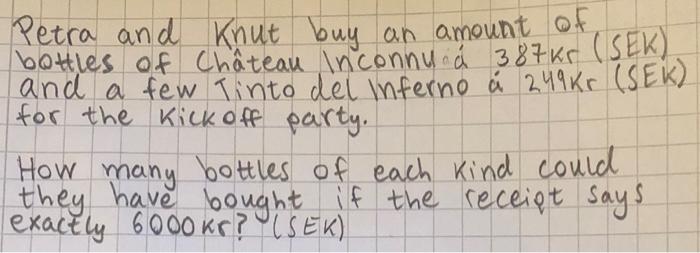 Petra and Knut buy an amount of
bottles of Château Inconnu á 387kr (SEK)
and a few Tinto del Inferno á 249kr (SEK)
for the kickoff party.
How many bottles of each kind could
they have bought if the receipt says
exactly 6000kr? (SEK)